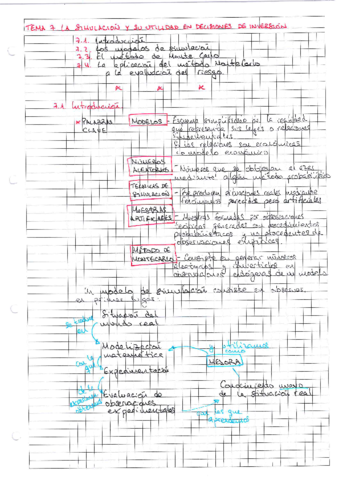 TEMA 7 LA SIMULACIÓN Y SU UTILIDAD EN DECISIONES DE INVERSIÓN
7.1. Introducción
7.2. Los modelos de simulación
7.3. El método de Monte Carlo
7.4. La aplicación del método Montecarlo
a la evaluación del riesgo
7.1 Introducción
PALABRAS CLAVE
MODELOS - Esquema simplificado de la realidad
que representa sus leyes o relaciones
fundamentales
Si las relaciones son económicas
modelo económico
NÚMEROS ALEATORIOS - Números que se obtienen al azar
mediante algún método probabilístico
TÉCNICAS DE SIMULACIÓN - Reproducen situaciones reales mediante
fenómenos parecidos pero artificiales
MUESTRAS ARTIFICIALES - Muestras formadas por observaciones
generadas con procedimientos
probabilísticos y no procedentes de
observaciones empíricas
MÉTODO DE MONTECARLO - Consiste en generar números
aleatorios y convertirlos en
observaciones de un modelo
Un modelo de simulación consiste en observar,
en primer lugar:
Situación del
mundo real
Modelización
matemática
Experimentación
Evaluación de
observaciones
experimentales
utilizamos
como
MEJORA
Conocimiento nuevo
de la situación real